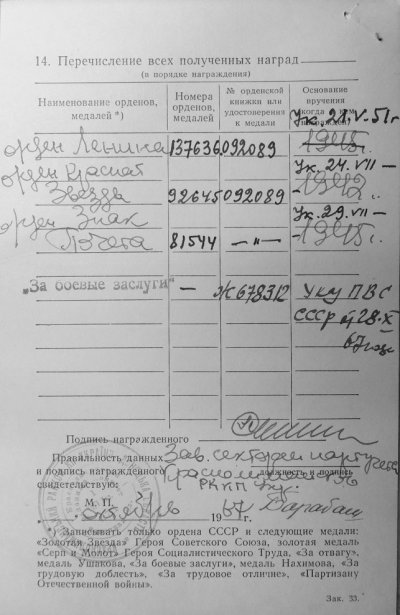 14. Перечисление всех полученных наград
(в порядке награждения)
Наименование орденов, медалей *)
Номера орденов, медалей
№ орденской книжки или удостоверения к медали
Основание вручения (когда и кем награжден)
орден Ленина 137636 092089 Ук. 21.V.51г
1945г.
орден Красная Звезда 92645 092089 Ук. 24.VII – 1942г.
орден Знак Почета 81544 —"— Ук. 29.VII – 1945г.
„За боевые заслуги" — Ж 678312 Указ ПВС
СССР от 28.X
67 года
Подпись награжденного
Правильность данных Зав. сектором
и подпись награжденного должность и подпись
свидетельствую:
М. П. 31
октябрь 1967 г. Барабаш
*) Записывать только ордена СССР и следующие медали:
„Золотая Звезда" Героя Советского Союза, золотая медаль
„Серп и Молот" Героя Социалистического Труда, „За отвагу",
медаль Ушакова, „За боевые заслуги", медаль Нахимова, „За
трудовую доблесть", „За трудовое отличие", „Партизану
Отечественной войны".
Зак. 33.